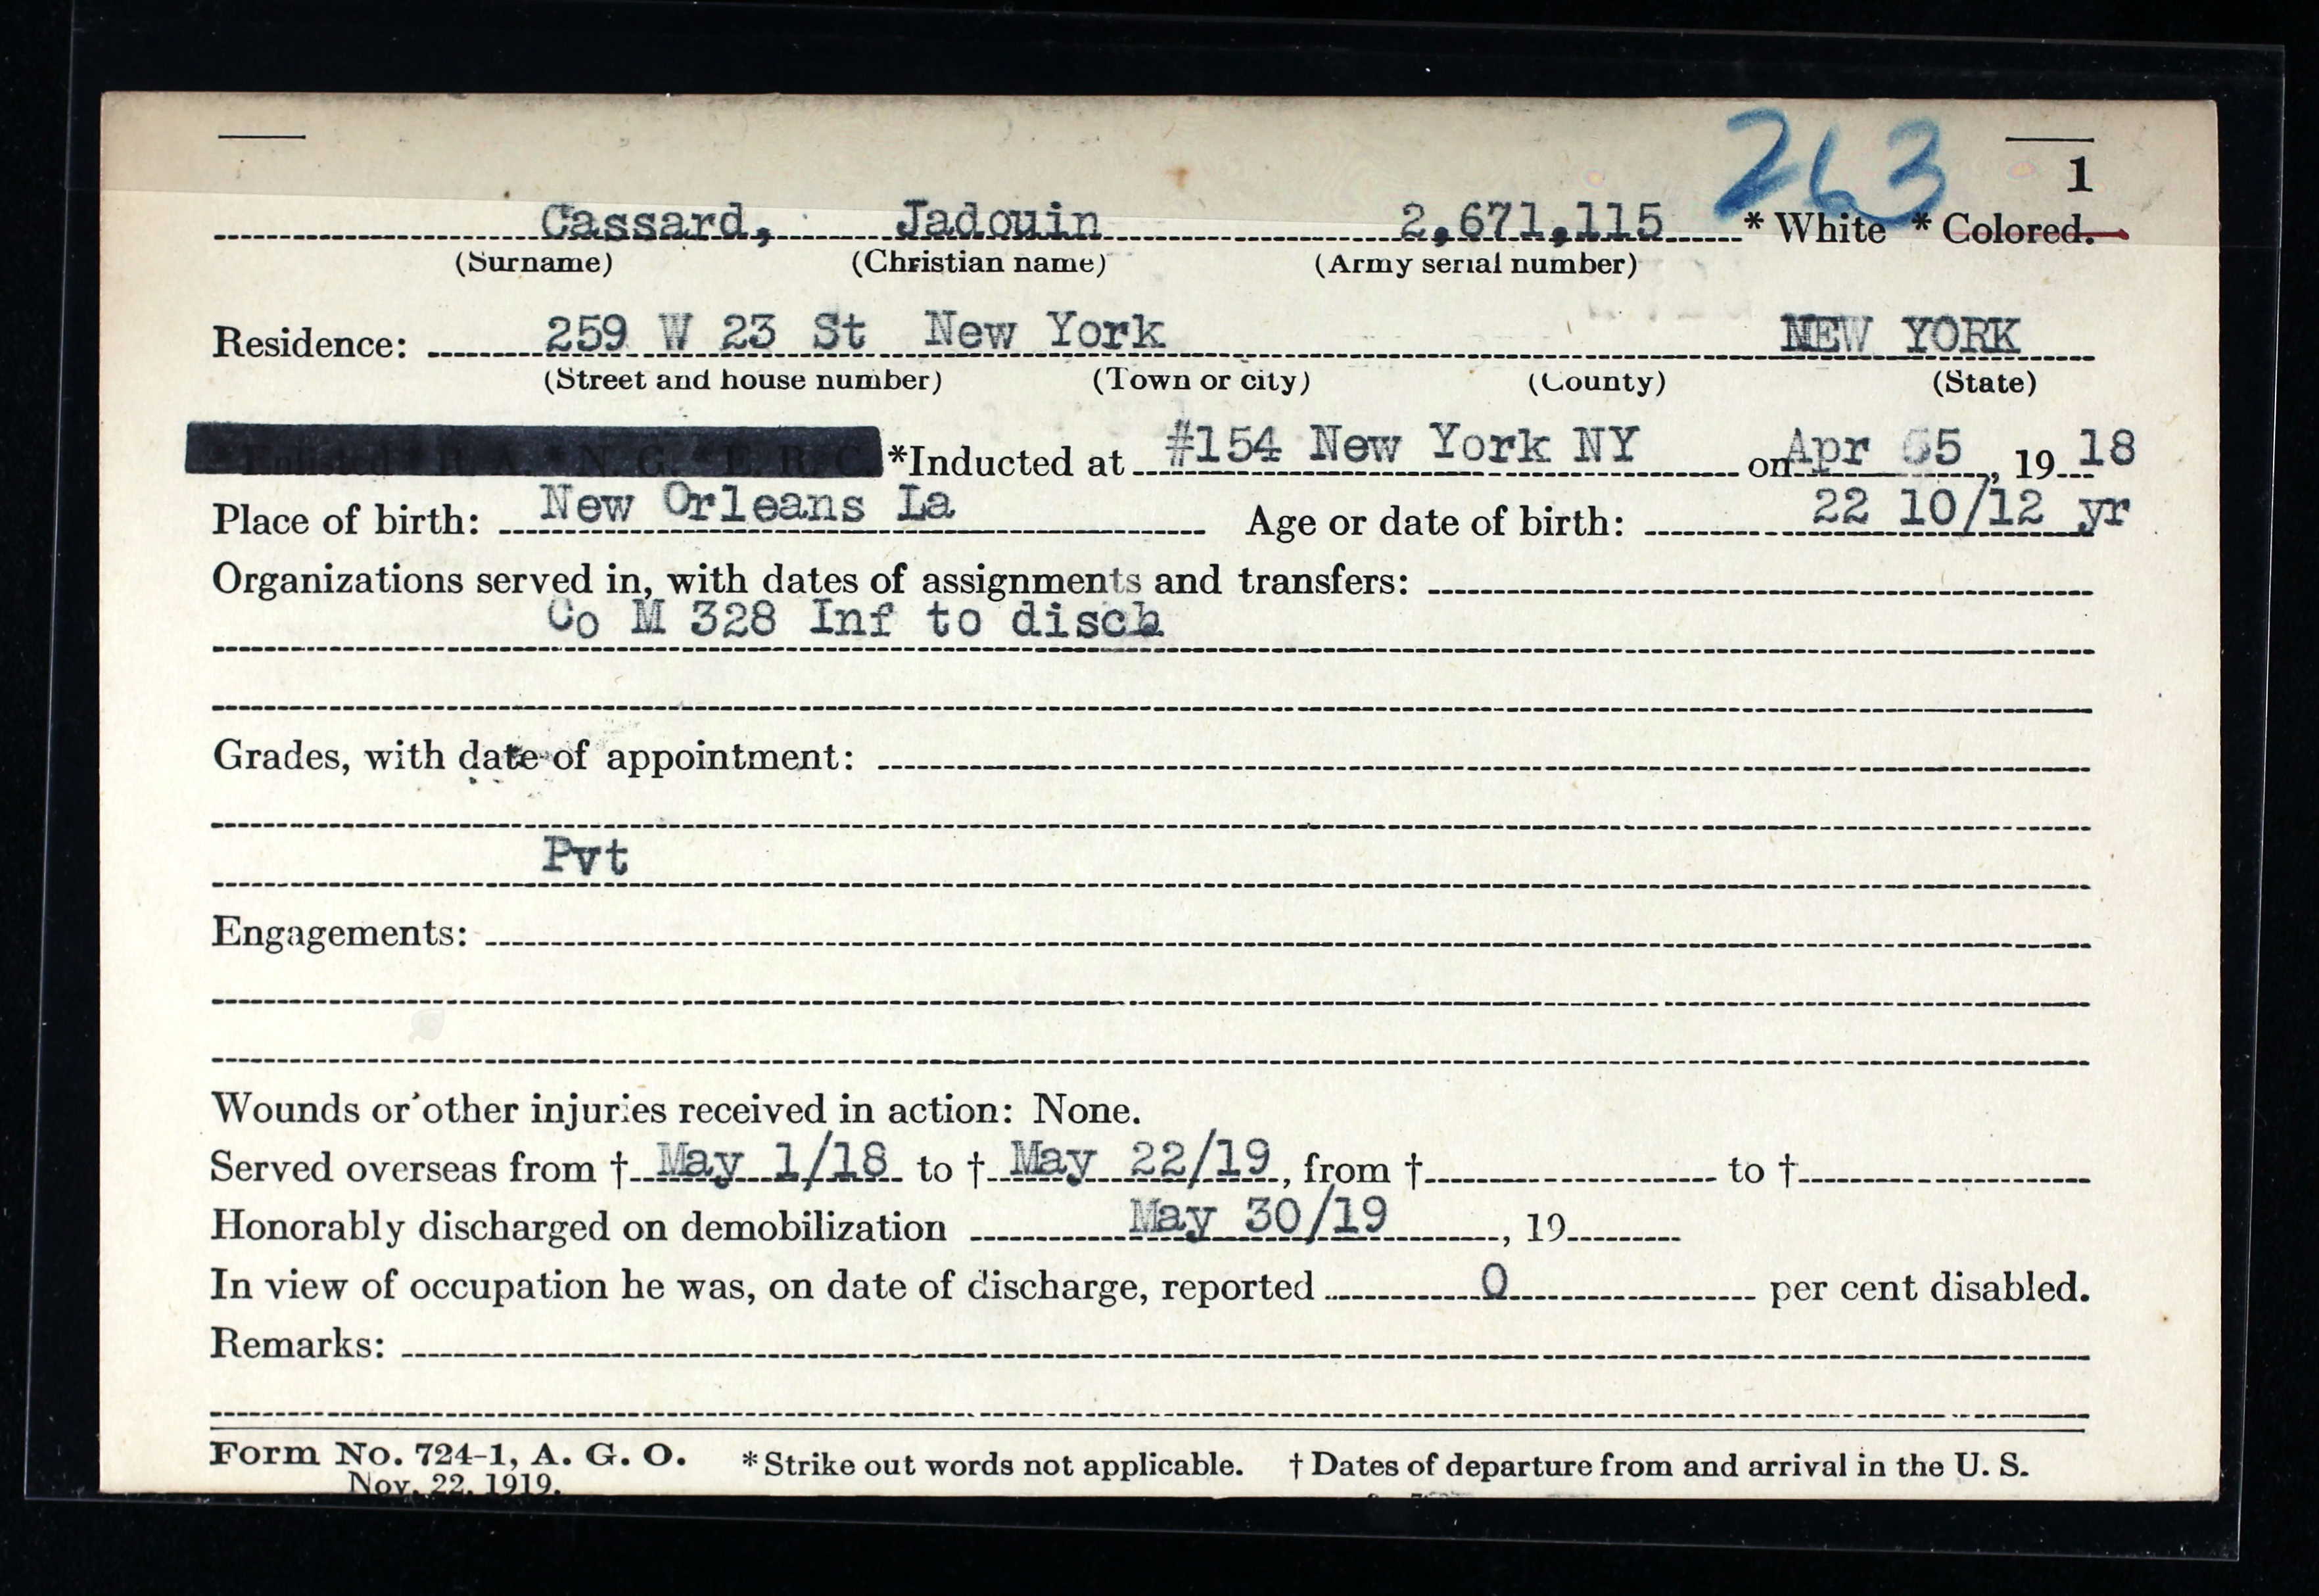 263
1
Cassard, Jadouin 2,671,115 * White * Colored.
(Surname) (Christian name) (Army serial number)
Residence: 259 W 23 St New York NEW YORK
(Street and house number) (Town or city) (County) (State)
*Inducted at #154 New York NY on Apr 5, 1918
Place of birth: New Orleans La Age or date of birth: 22 10/12 yr
Organizations served in, with dates of assignments and transfers:
Co M 328 Inf to disch
Grades, with date of appointment:
Pvt
Engagements:
Wounds or other injuries received in action: None.
Served overseas from † May 1/18 to † May 22/19, from † to †
Honorably discharged on demobilization May 30/19, 19
In view of occupation he was, on date of discharge, reported 0 per cent disabled.
Remarks:
Form No. 724-1, A. G. O. * Strike out words not applicable. † Dates of departure from and arrival in the U. S.
Nov. 22, 1919.